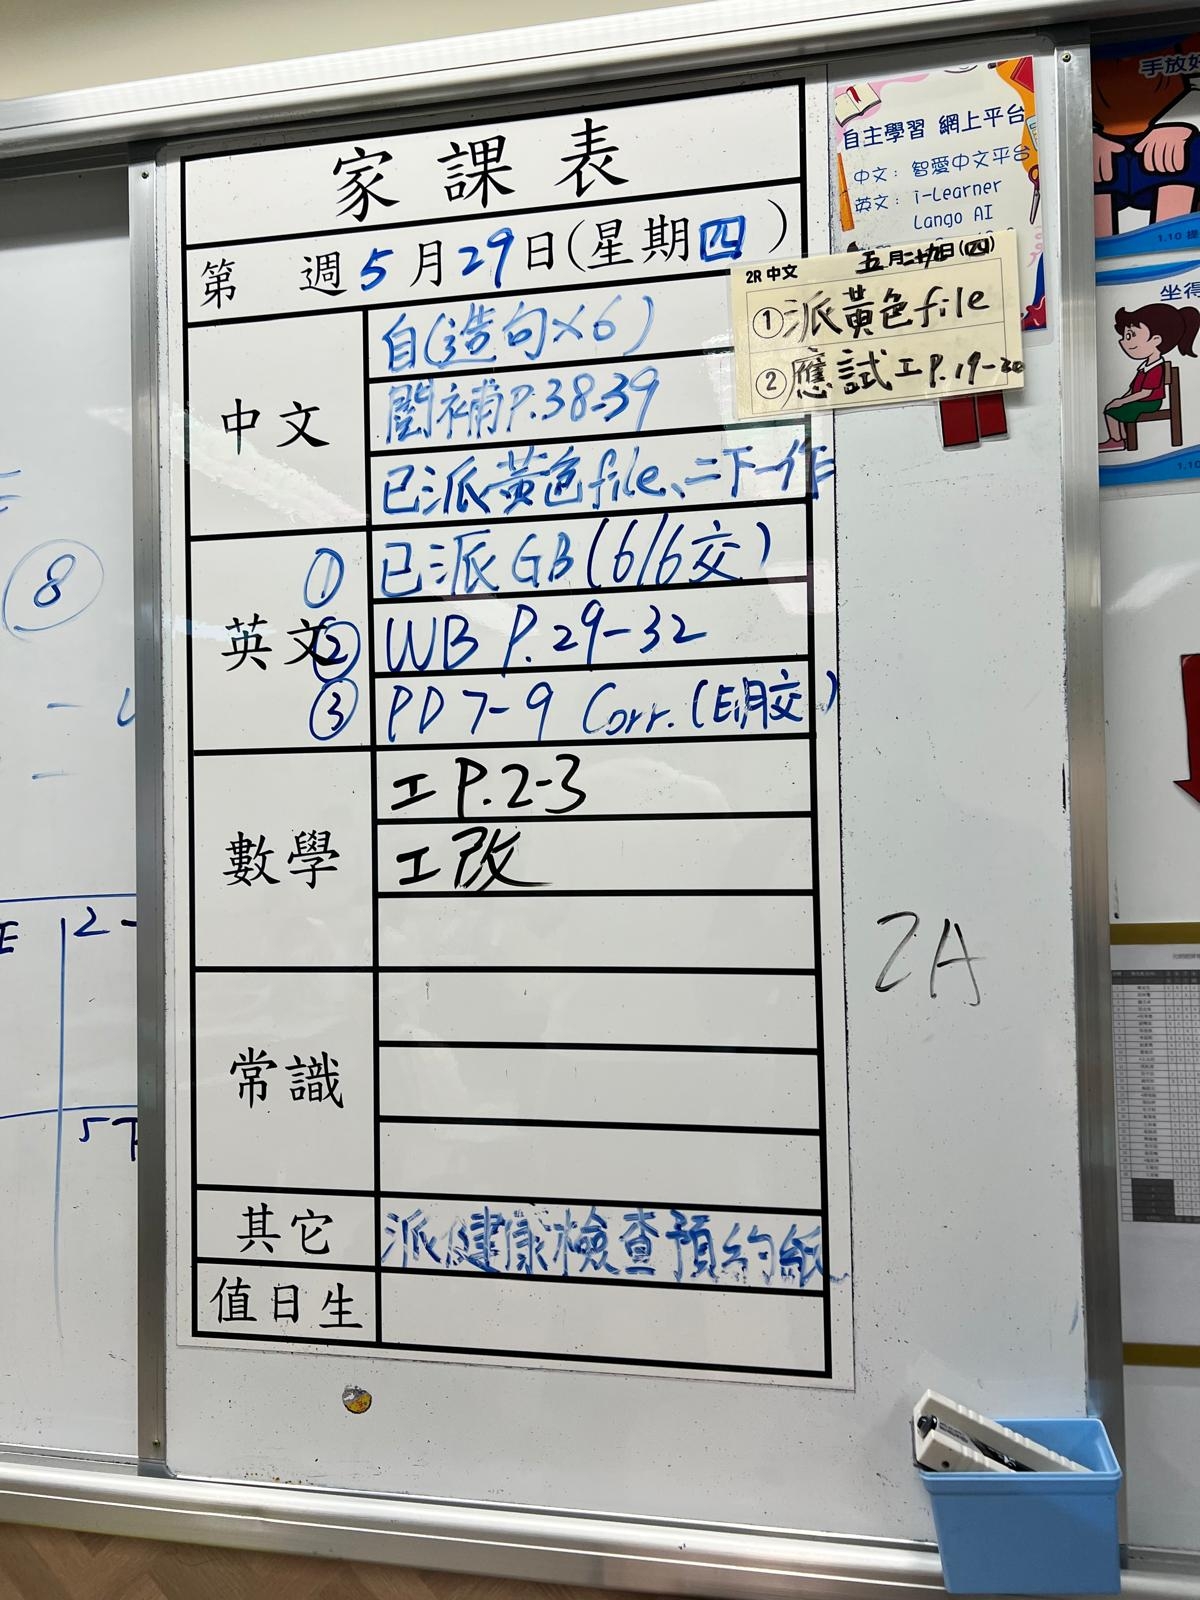 家課表
第 週5月29日(星期四)
中文
自(造句×6)
閱補P.38-39
已派黃色file、二下一作
英文
① 已派GB(6/6交)
② WB P.29-32
③ PD 7-9 Corr.(E明交)
數學
工P.2-3
工改
常識
其它
派健康檢查預約紙
值日生
自主學習 網上平台
中文:智愛中文平台
英文:i-Learner
Lango AI
2R 中文 五月二十九日(四)
①派黃色file
②應試工P.19-20
2A
8
2-
手放好
1.10
坐得